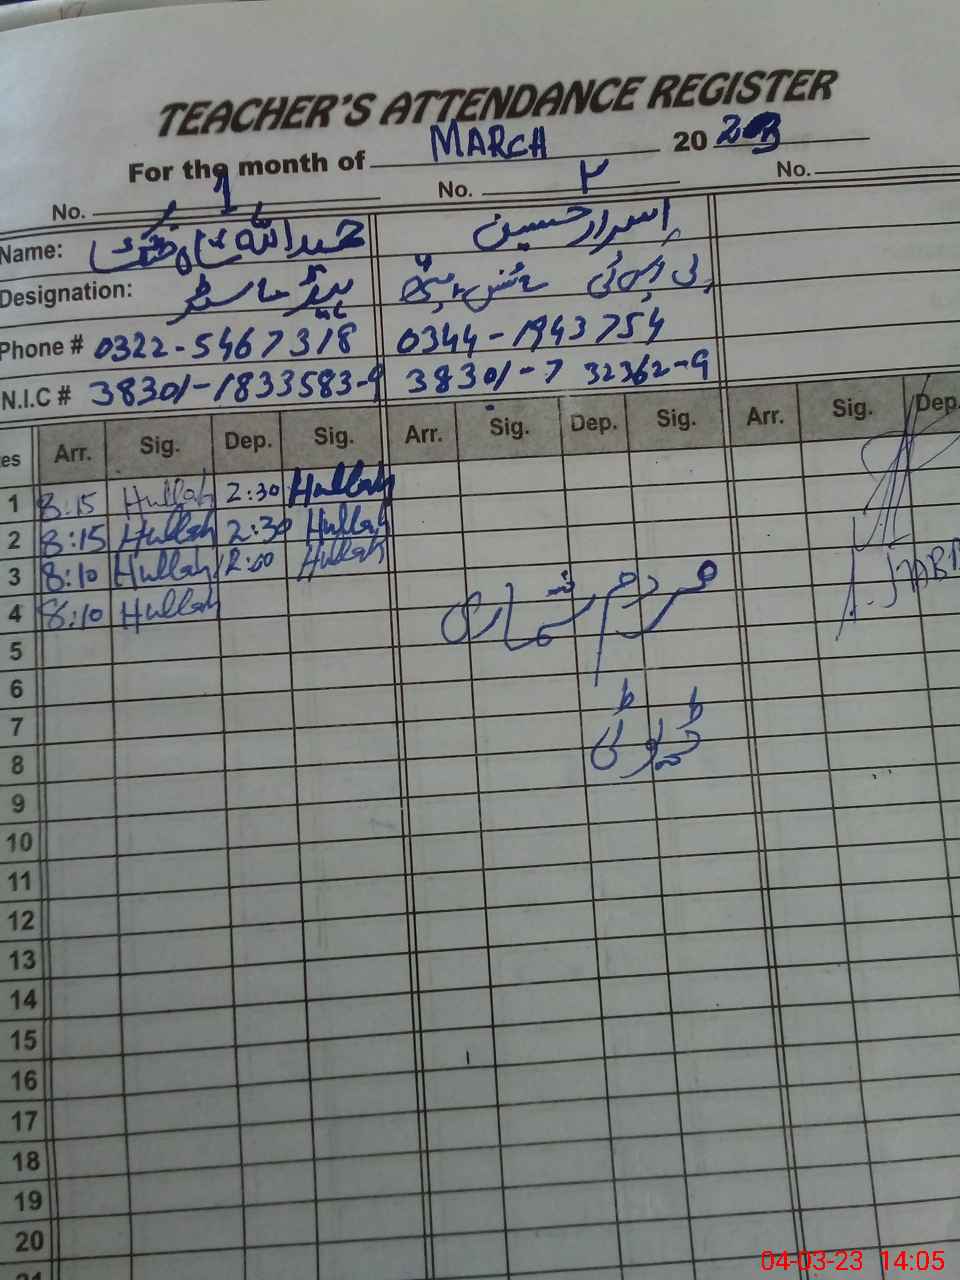 TEACHER'S ATTENDANCE REGISTER
For the month of MARCH 20 23
No. 1 No. ۲ No.
Name: حمید اللہ اسرار حسین
Designation: ہیڈ ماسٹر پی ایس ٹی
Phone # 0322-5467318 0344-1943754
N.I.C # 38301-1833583-9 38301-7 32362-9
es Arr. Sig. Dep. Sig. Arr. Sig. Dep. Sig. Arr. Sig. Dep.
1 8:15 Hullah 2:30 Hullah
2 8:15 Hullah 2:30 Hullah
3 8:10 Hullah 12:00 Hullah
4 8:10 Hullah
مردم شماری
5
6
7
ڈیوٹی
8
9
10
11
12
13
14
15
16
17
18
19
20
21
04-03-23 14:05